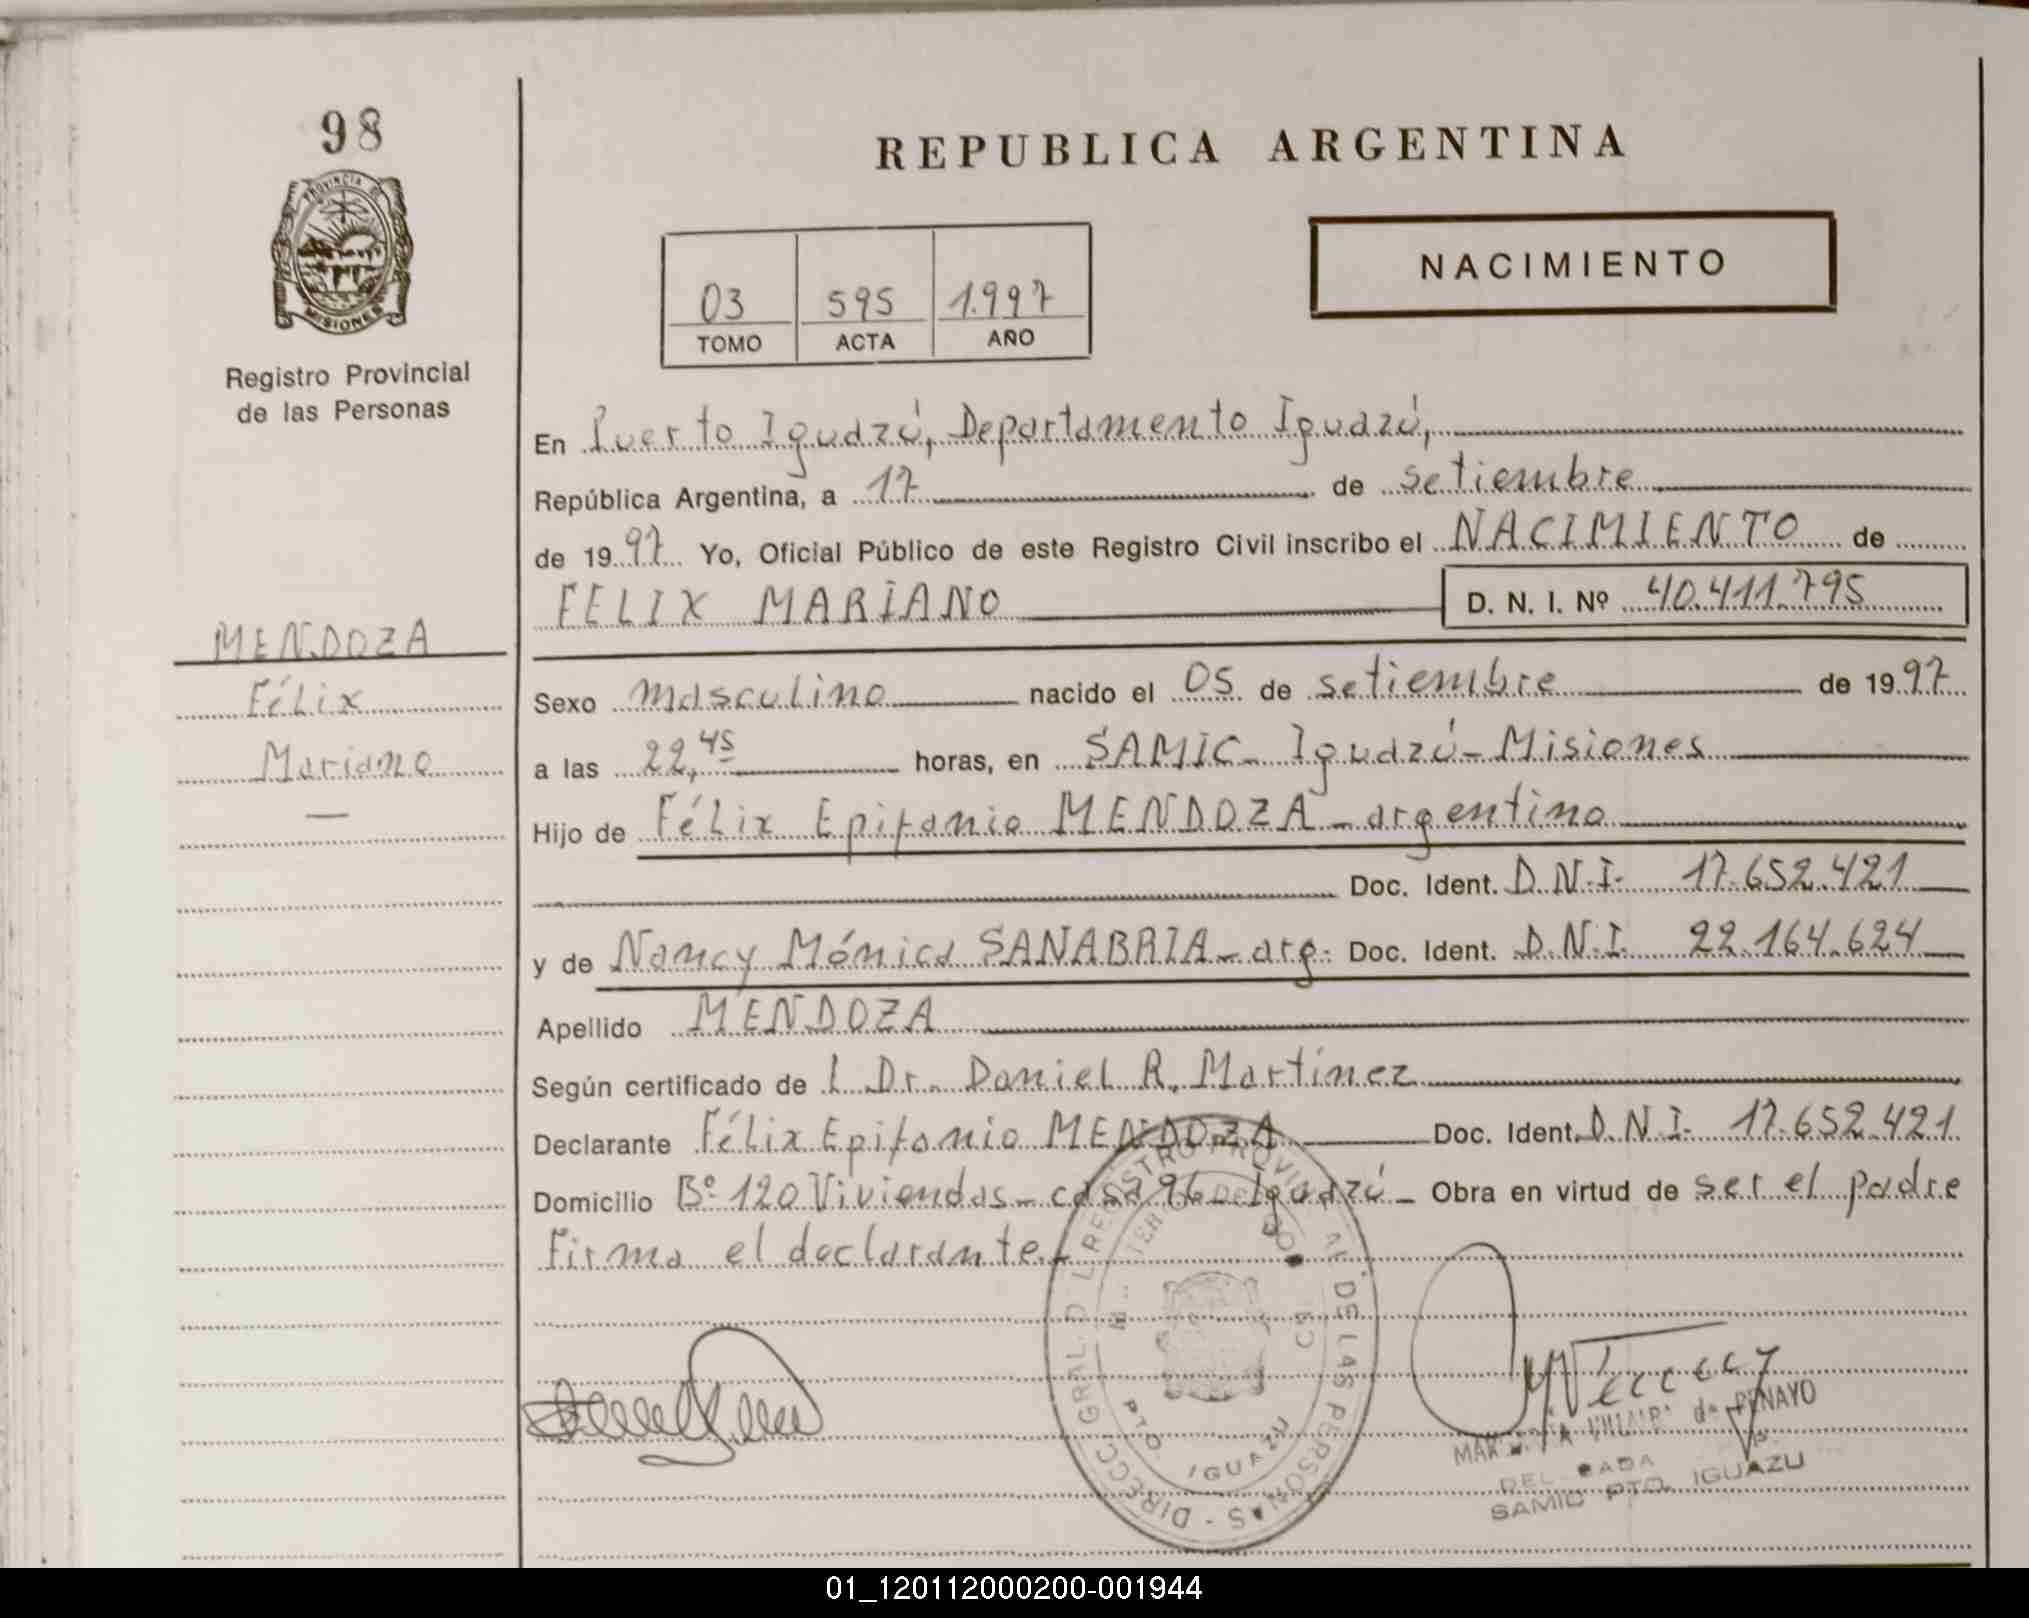 98
PROVINCIA DE
MISIONES
Registro Provincial
de las Personas
MENDOZA
Félix
Mariano
—
REPUBLICA ARGENTINA
03 595 1.997
TOMO ACTA AÑO
NACIMIENTO
En Puerto Iguazú, Departamento Iguazú,
República Argentina, a 17 de setiembre
de 19 97 Yo, Oficial Público de este Registro Civil inscribo el NACIMIENTO de
FELIX MARIANO D. N. I. Nº 40.411.795
Sexo masculino nacido el 05 de setiembre de 19 97
a las 22,45 horas, en SAMIC - Iguazú - Misiones
Hijo de Félix Epifanio MENDOZA - argentino
Doc. Ident. D.N.I. 17.652.421
y de Nancy Mónica SANABRIA - arg. Doc. Ident. D.N.I. 22.164.624
Apellido MENDOZA
Según certificado de l Dr. Daniel R. Martínez
Declarante Félix Epifanio MENDOZA Doc. Ident. D.N.I. 17.652.421
Domicilio Bº 120 Viviendas - casa 96 - Iguazú - Obra en virtud de ser el padre
Firma el declarante.
DIRECC. GRAL. D L REGISTRO PROVINCIAL DE LAS PERSONAS -
PTO. IGUAZU
de PENAYO
SAMIC PTO. IGUAZU
01_120112000200-001944